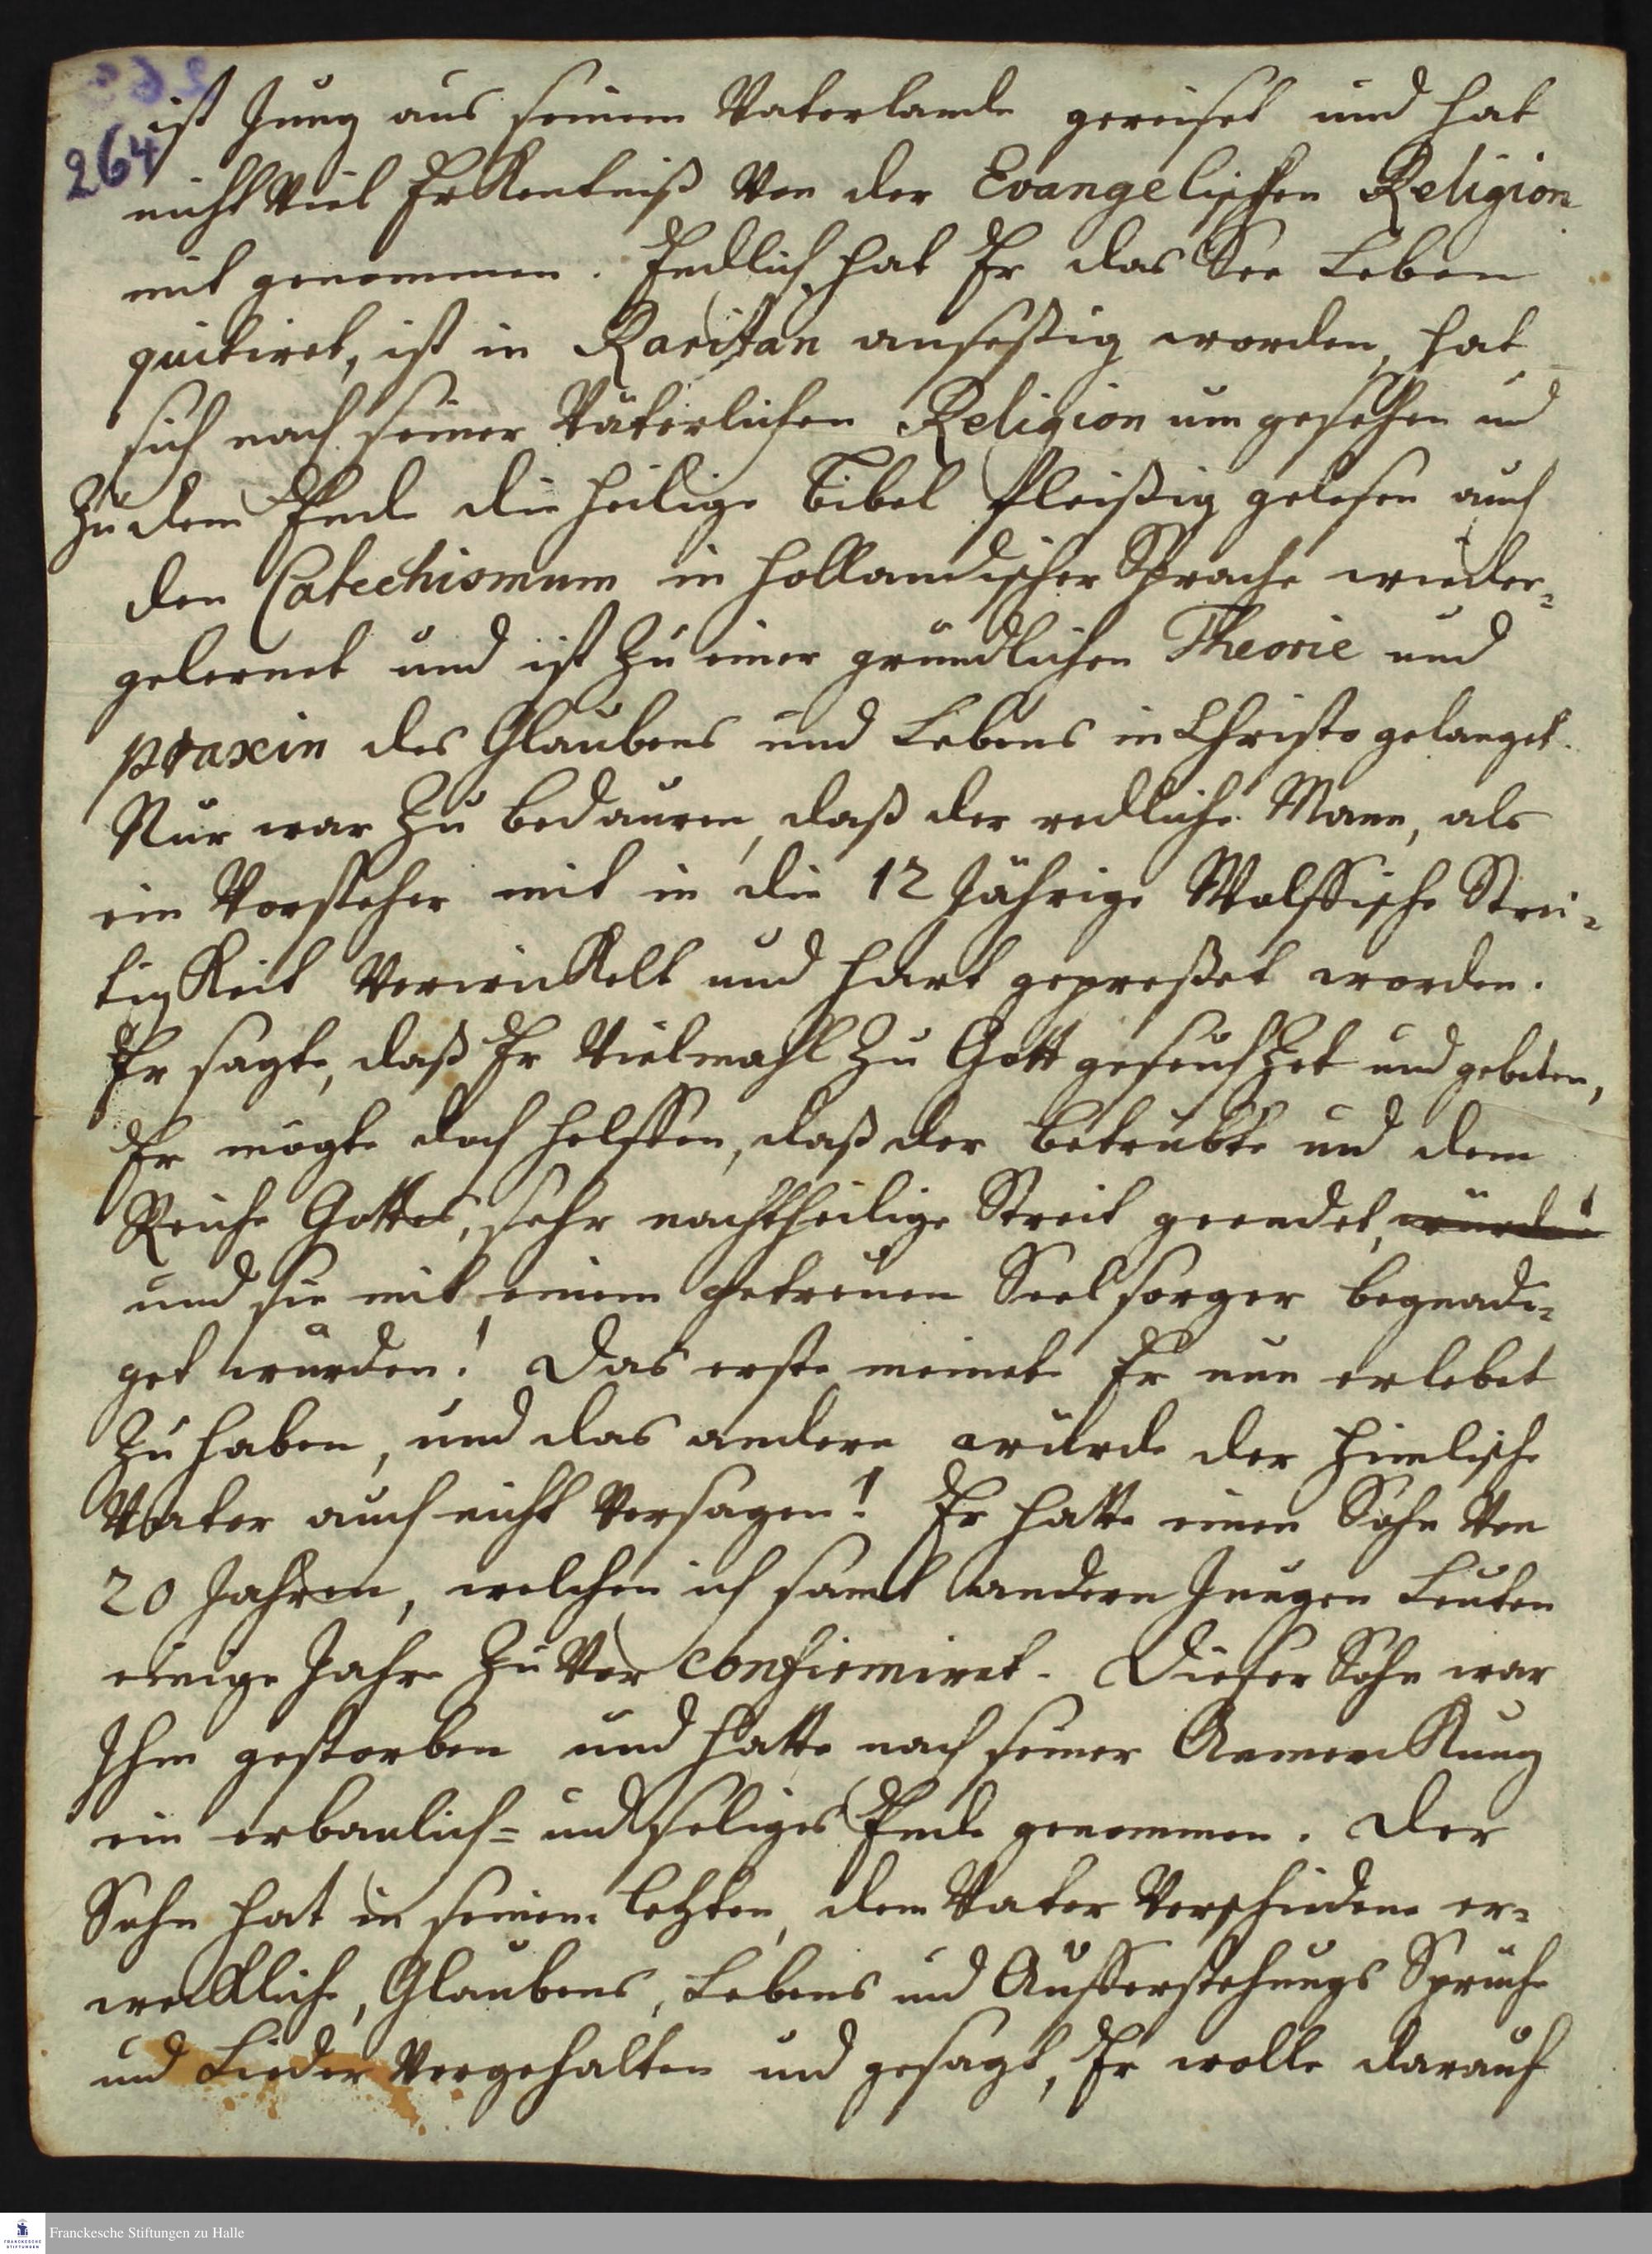 264
ist Jung aus seinem Vaterlande gereiset und hat
nicht viel Erkentniß von der Evangelischen Religion
mit genommen. Endlich hat Er das See Leben
quitiret, ist in Raritan ansessig worden, hat
sich nach seiner Väterlichen Religion um gesehen und
zu dem Ende die heilige Bibel fleißig gelesen auch
den Catechismum in hollandischer Sprache wieder=
gelernet und ist zu einer gründlichen Theorie und
praxin des Glaubens und Lebens in Christo gelanget.
Nur war zu bedauren, daß der redliche Mann, als
ein Vorsteher mit in die 12 Jährige Wolffische Strei=
tigkeit verwickelt und hart gepreßet worden.
Er sagte, daß Er vielmahl zu Gott geseufzet und gebeten,
Er mögte doch helffen, daß der betrübte und dem
Reiche Gottes, sehr nachtheilige Streit geendet, würde
und sie mit einem getreuen Seelsorger begnadi=
get würden! Das erste meinete Er nun erlebet
zu haben, und das andere würde der himlische
Vater auch nicht versagen! Er hatte einen Sohn von
20 Jahren, welchen ich samt andern Jungen Leuten
einige Jahre zu vor confirmiret. Dieser Sohn war
Ihm gestorben und hatte nach seiner Anmerckung
ein erbaulich= und seliges Ende genommen. Der
Sohn hat in seinem letzten, dem Vater verschiedene er=
weckliche, Glaubens, Lebens und Aufferstehungs Sprüche
und Lieder vorgehalten und gesagt, Er wolle darauf
Franckesche Stiftungen zu Halle
FRANCKESCHE
STIFTUNGEN